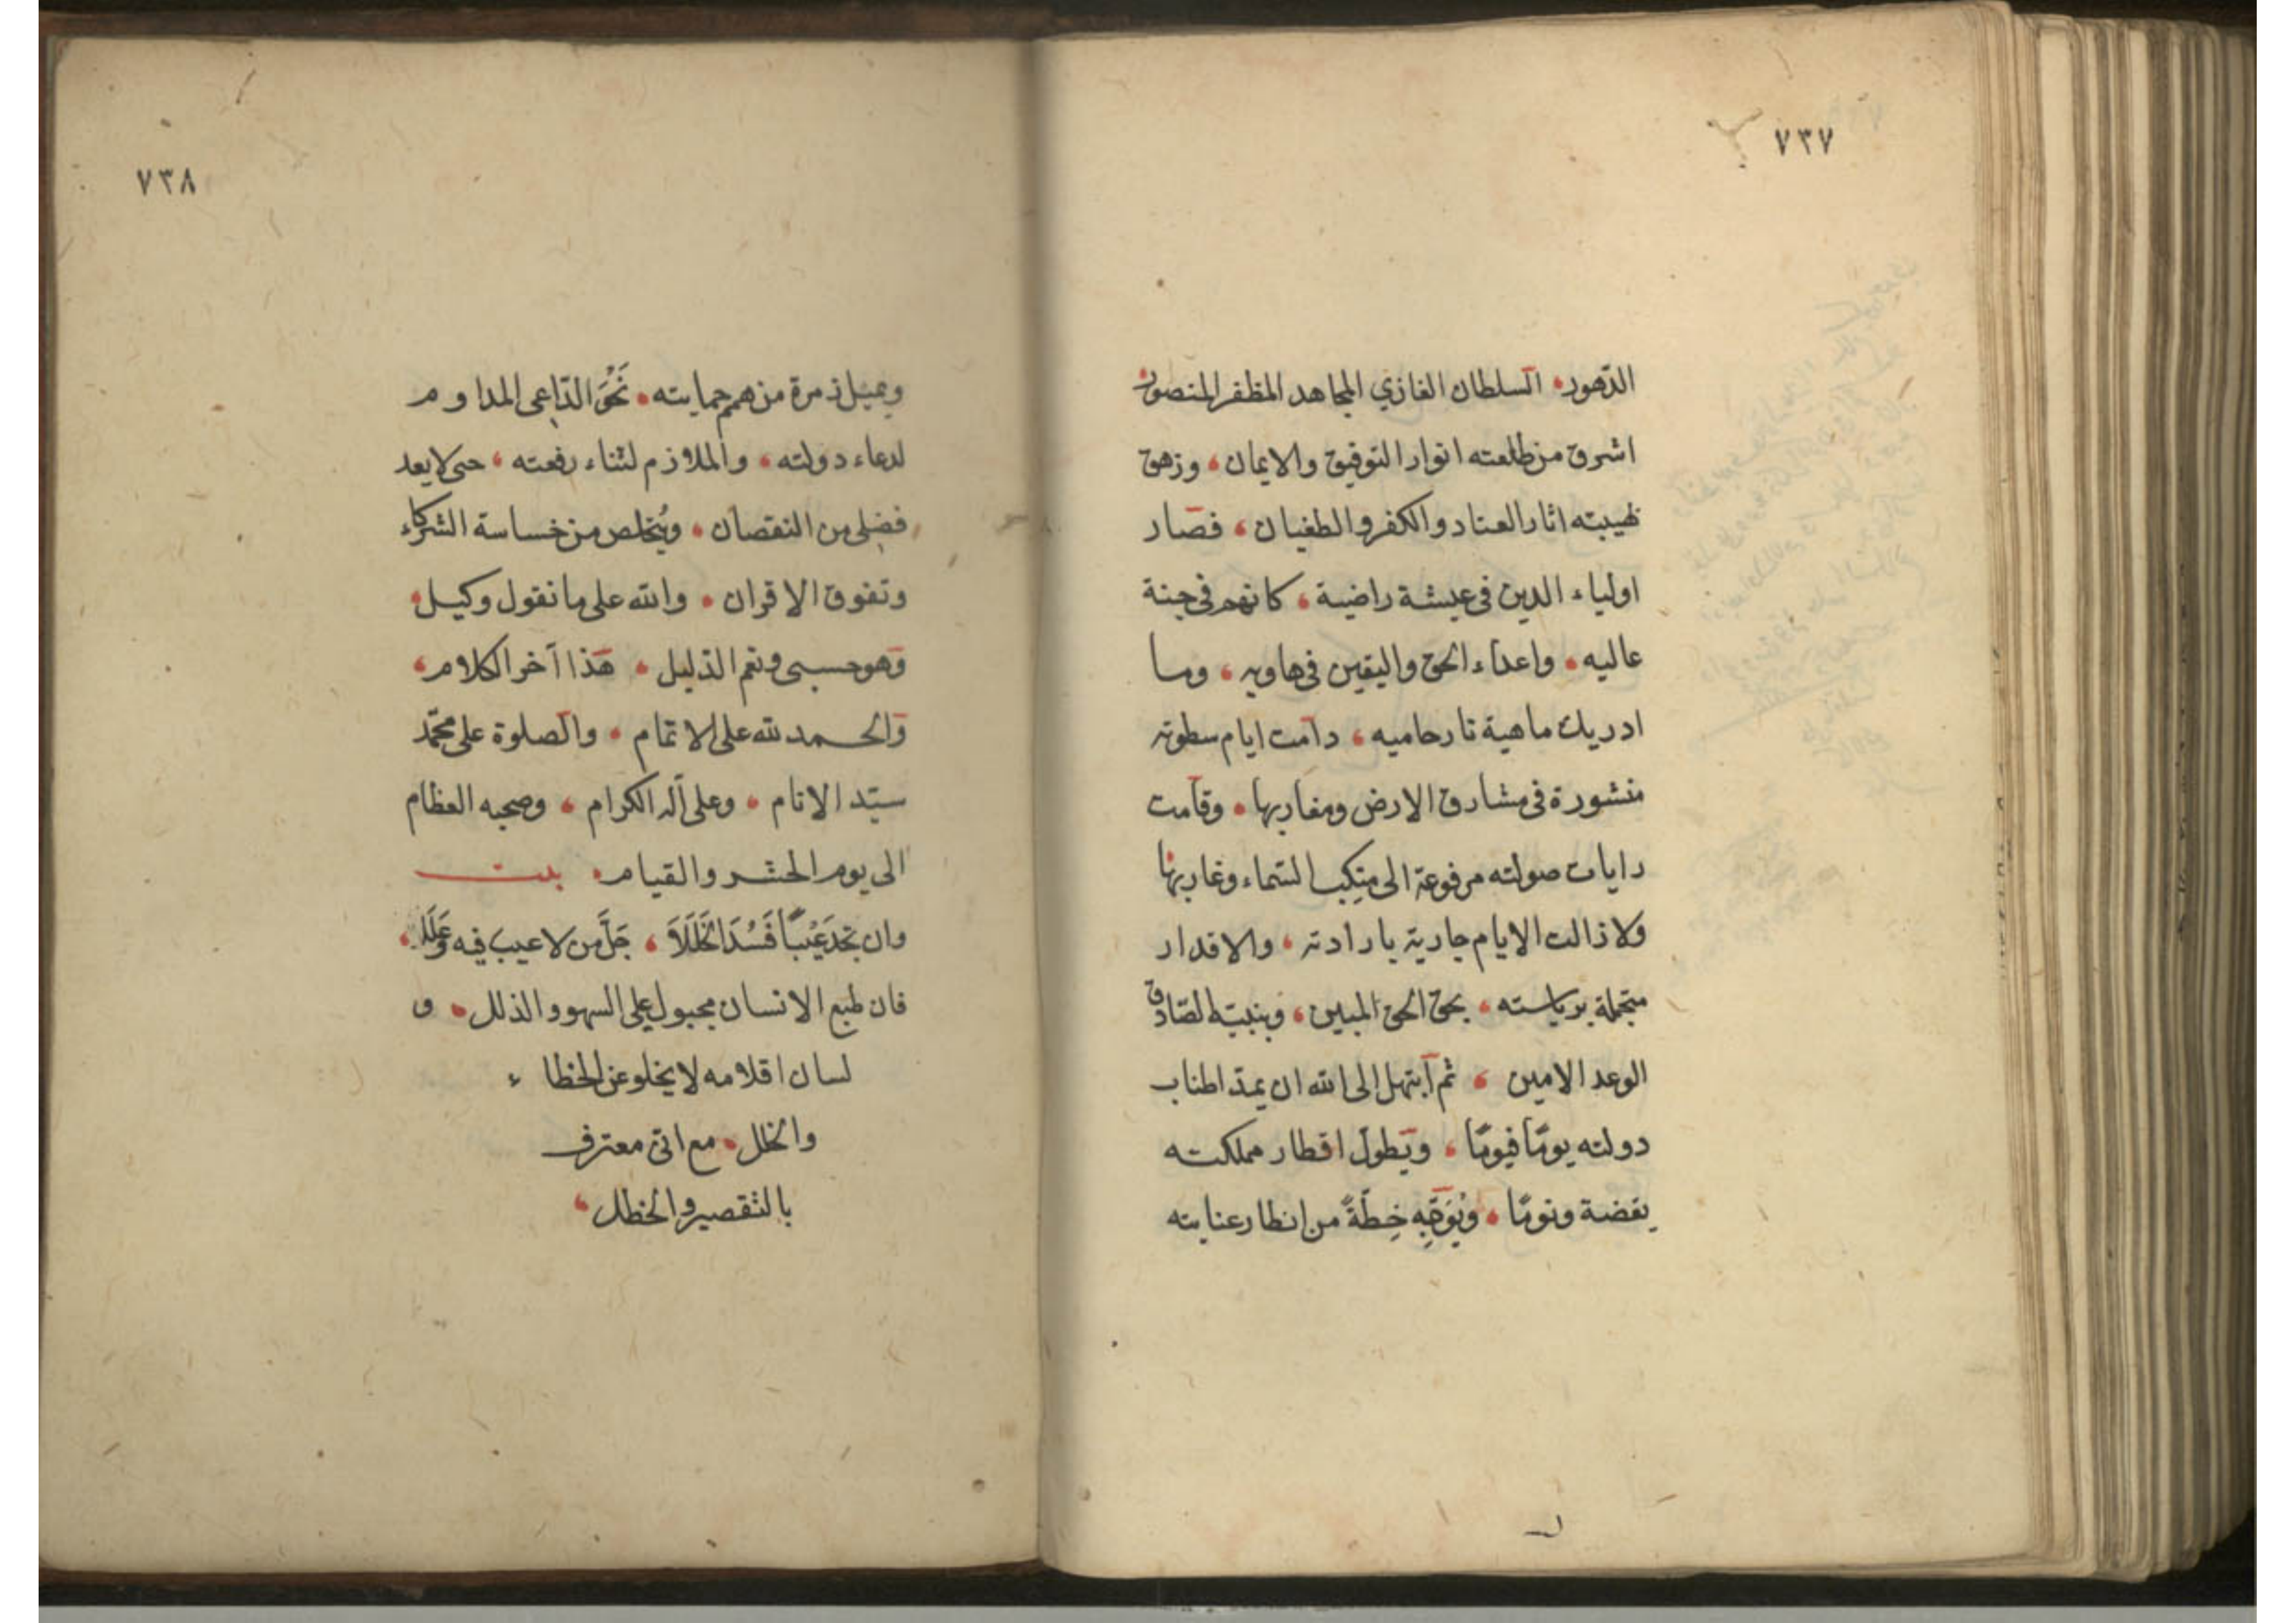 ٧٣٧
الدهور السلطان الغازي المجاهد المظفر المنصور
اشرق من طلعته انوار التوفيق والايمان، وزهق
لهيبته اثار العناد والكفر والطغيان، فصار
اولياء الدين فى عيشة راضية، كانهم فى جنة
عاليه، واعداء الحق واليقين فى هاويه، وما
ادريك ماهية نار حاميه، دامت ايام سطوته
منشورة فى مشارق الارض ومغاربها، وقامت
رايات صولته مرفوعة الى منكب السماء وغاربها
ولا زالت الايام جارية بارادته، والاقدار
متجملة برياسته، بحق الحق المبين، وبنبيه الصادق
الوعد الامين، ثم ابتهل الى الله ان يمدّ اطناب
دولته يومًا فيومًا، ويطول اقطار مملكته
يقضة ونومًا، ويُوَجِّه خِطّةً من انظار عنايته
٧٣٨
ويميل ذمرة من همم حمايته، نَحْوَ الدّاعى المداوم
لدعاء دولته، والملازم لثناء رفعته، حتى لا يعد
فضلى من النقصان، ويُخلص من خساسة الشركاء
وتفوق الاقران، والله على ما نقول وكيل،
وهو حسبى ونعم الدليل، هذا آخر الكلام،
والحمد لله على الاتمام، والصلوة على محمّد
سيّد الانام، وعلى آله الكرام، وصحبه العظام
الى يوم الحشر والقيام، بيت
وان تجد عَيْبًا فَسُدَ الخَلَلَا، جَلَّ من لا عيب فيه وَعَلَا،
فان طبع الانسان مجبول على السهو والذلل، و
لسان اقلامه لا يخلو عن الخطاء
والخلل، مع انّى معترف
بالتقصير والخطل،